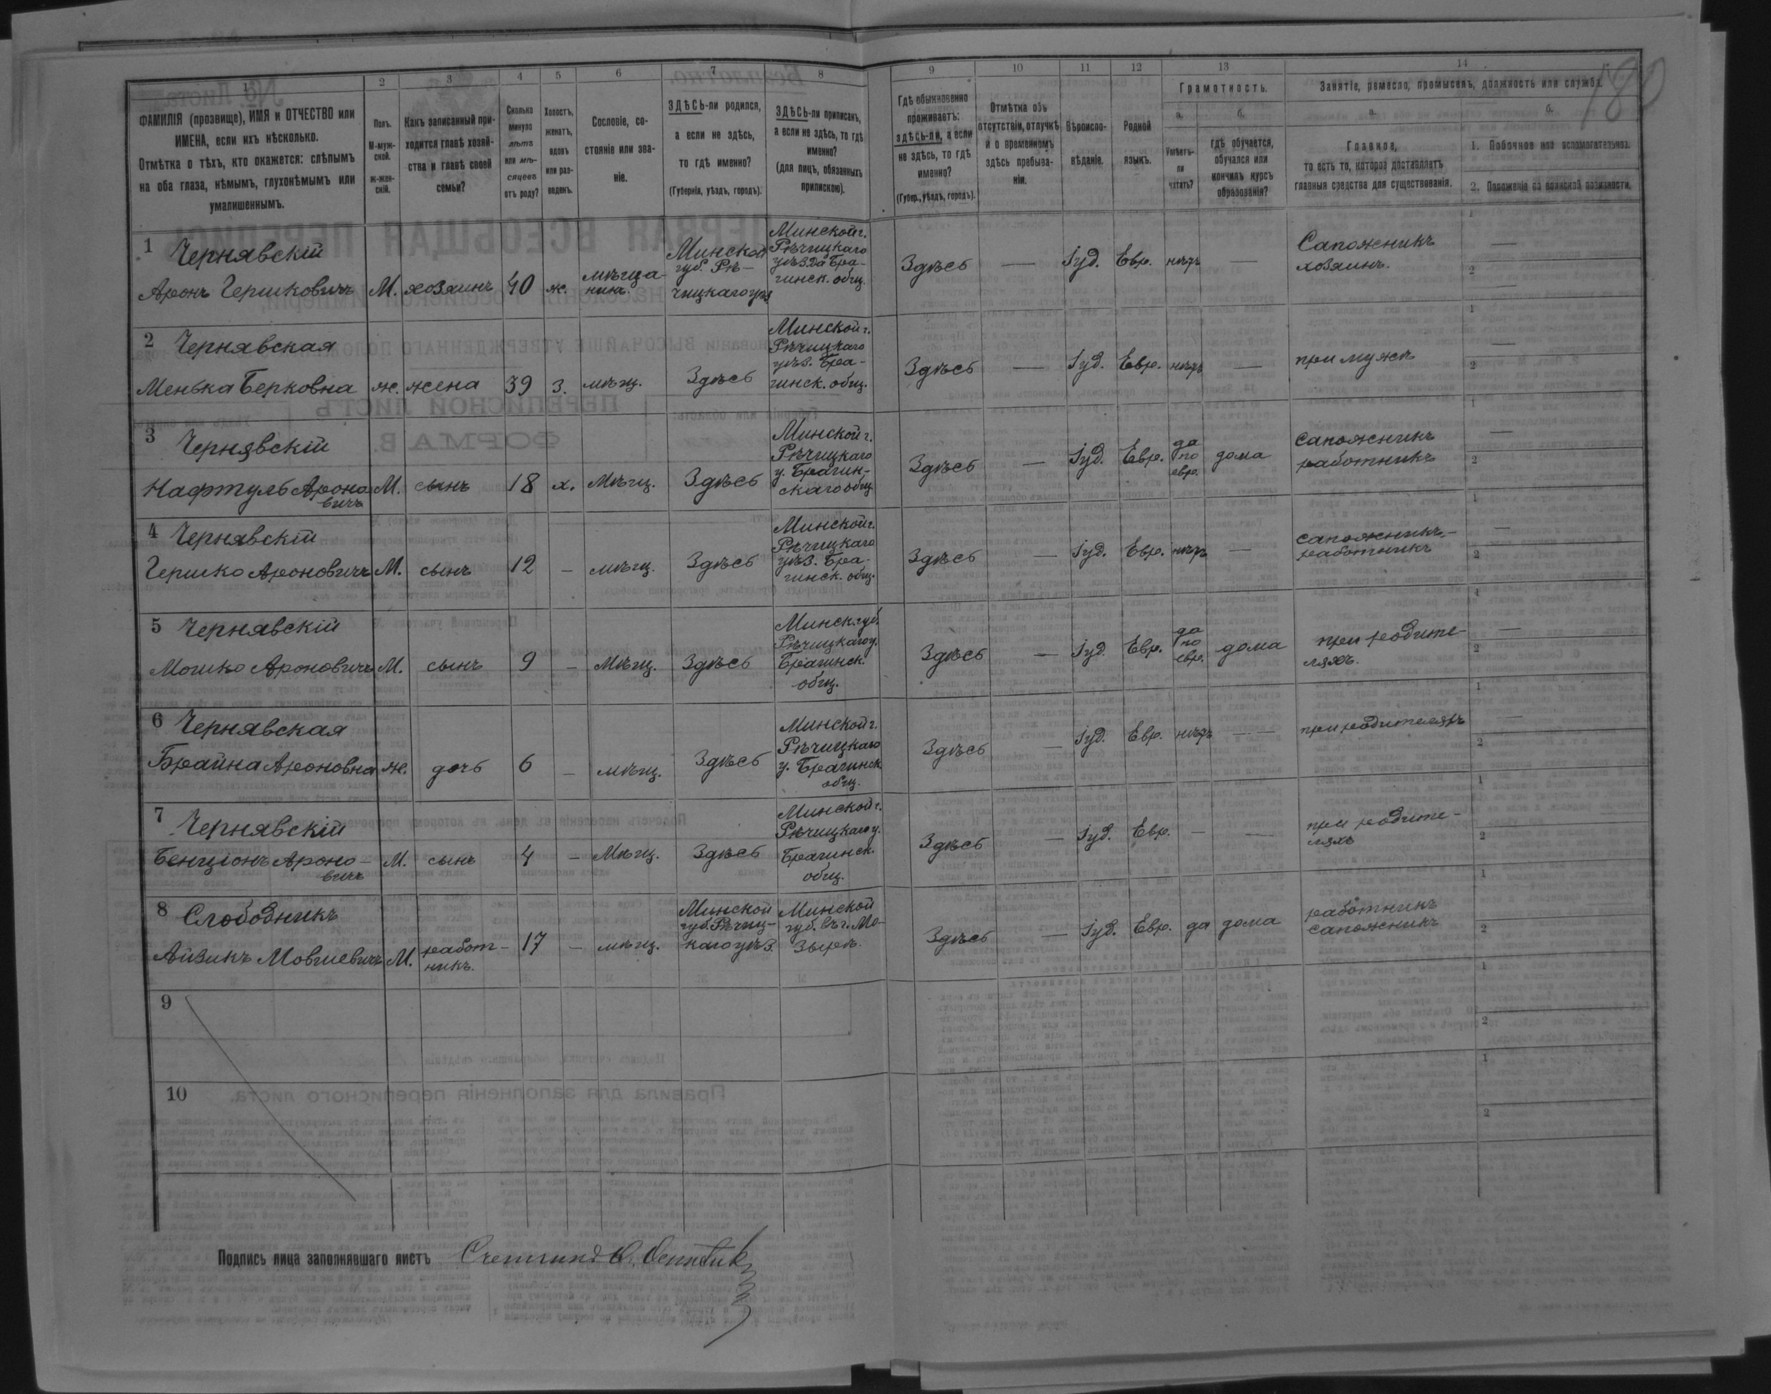 180
1 2 3 4 5 6 7 8 9 10 11 12 13 14
ФАМИЛІЯ (прозвище), ИМЯ и ОТЧЕСТВО или
ИМЕНА, если ихъ нѣсколько.
Отмѣтка о тѣхъ, кто окажется: слѣпымъ
на оба глаза, нѣмымъ, глухонѣмымъ или
умалишеннымъ.
Полъ.
М-муж-
ской.
ж-жен-
скій.
Какъ записанный при-
ходится главѣ хозяй-
ства и главѣ своей
семьи?
Сколько
минуло
лѣтъ
или мѣ-
сяцевъ
отъ роду?
Холостъ,
женатъ,
вдовъ
или раз-
веденъ.
Сословіе, со-
стояніе или зва-
ніе.
ЗДѢСЬ-ли родился,
а если не здѣсь,
то гдѣ именно?
(Губернія, уѣздъ, городъ).
ЗДѢСЬ-ли приписанъ,
а если не здѣсь, то гдѣ
именно?
(для лицъ, обязанныхъ
припискою).
Гдѣ обыкновенно
проживаетъ:
здѣсь-ли, а если
не здѣсь, то гдѣ
именно?
(Губер., уѣздъ, городъ).
Отмѣтка объ
отсутствіи, отлучкѣ
и о временномъ
здѣсь пребыва-
ніи.
Вѣроиспо-
вѣданіе.
Родной
языкъ.
Грамотность.
а.
Умѣетъ-
ли
читать?
б.
гдѣ обучается,
обучался или
кончилъ курсъ
образованія?
Занятіе, ремесло, промыселъ, должность или служба.
а.
Главное,
то есть то, которое доставляетъ
главныя средства для существованія.
б.
1. Побочное или вспомогательное.
2. Положеніе по воинской повинности.
1 Чернявскій
Аронъ Гершковичъ М. хозяинъ 40 ж. мѣща-
нинъ
Минской
губ. Рѣ-
чицкаго уѣз
Минской г.
Рѣчицкаго
уѣзда Бра-
гинск. общ.
Здѣсь — Іуд. Евр. нѣтъ —
Сапожникъ
хозяинъ.
1 —
2 —
2 Чернявская
Менька Берковна ж. жена 39 з. мѣщ. Здѣсь
Минской г.
Рѣчицкаго
уѣз. Бра-
гинск. общ.
Здѣсь — Іуд. Евр. нѣтъ — при мужѣ
1 —
2
3 Чернявскій
Нафтуль Ароно-
вичъ
М. сынъ 18 х. мѣщ. Здѣсь
Минской г.
Рѣчицкаго
у. Брагин-
скаго общ
Здѣсь — Іуд. Евр.
да
по
евр.
дома
сапожникъ
работникъ
1 —
2
4 Чернявскій
Гершко Ароновичъ М. сынъ 12 — мѣщ. Здѣсь
Минской г.
Рѣчицкаго
уѣз. Бра-
гинск. общ.
Здѣсь — Іуд. Евр. нѣтъ —
сапожникъ-
работникъ
1 —
2
5 Чернявскій
Мошко Ароновичъ М. сынъ 9 — мѣщ. Здѣсь
Минск. губ.
Рѣчицкаго у.
Брагинск.
общ.
Здѣсь — Іуд. Евр.
да
по
евр.
дома
при родите-
ляхъ.
1 —
2
6 Чернявская
Брайна Ароновна ж. дочь 6 — мѣщ. Здѣсь
Минской г.
Рѣчицкаго
у. Брагинск
общ.
Здѣсь — Іуд. Евр. нѣтъ — при родителяхъ
1 —
2
7 Чернявскій
Бенціонъ Ароно-
вичъ
М. сынъ 4 — мѣщ. Здѣсь
Минской г.
Рѣчицкаго у.
Брагинск.
общ.
Здѣсь — Іуд. Евр. — —
при родите-
ляхъ
1
2
8 Слободникъ
Айзикъ Мовшевичъ М. работ-
никъ.
17 — мѣщ.
Минской
губ. Рѣчиц-
каго уѣз.
Минской
губ. въ г. Мо-
зырѣ.
Здѣсь — Іуд. Евр. да дома
работникъ
сапожникъ
1
2
9
1
2
10
1
2
Подпись лица заполнявшаго листъ